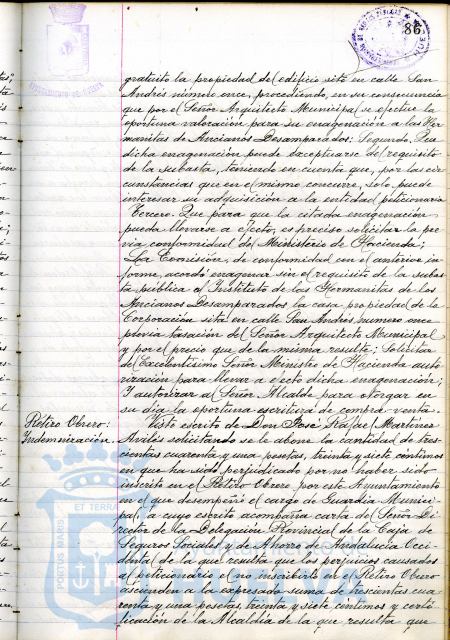 86
gratuito la propiedad del edificio sito en calle San
Andrés número once, procediendo, en su consecuencia
que por el Señor Arquitecto Municipal se efectue la
oportuna valoración para su enagenación a las Her-
manitas de Ancianos Desamparados; Segundo, Que
dicha enagenación puede exceptuarse del requisito
de la subasta, teniendo en cuenta que, por las cir-
cunstancias que en el mismo concurre, solo puede
interesar su adquisición a la entidad peticionaria
Tercero. Que para que la citada enagenación
pueda llevarse a efecto, es preciso solicitar la pre-
via conformidad del Ministerio de Hacienda;
La Comisión, de conformidad con el anterior in-
forme, acordó enagenar sin el requisito de la subas-
ta pública al Instituto de las Hermanitas de los
Ancianos Desamparados la casa propiedad de la
Corporación sita en calle San Andrés número once
previa tasación del Señor Arquitecto Municipal
y por el precio que de la misma resulte; Solicitar
del Excelentísimo Señor Ministro de Hacienda auto-
rización para llevar a efecto dicha enagenación;
Y autorizar al Señor Alcalde para otorgar en
su día la oportuna escritura de compra-venta.
Retiro Obrero:
Indemnización.
Visto escrito de Don José Rafael Martínez
Avilés solicitando se le abone la cantidad de tres-
cientas cuarenta y una pesetas, treinta y siete céntimos
en que ha sido perjudicado por no haber sido
inscrito en el Retiro Obrero por este Ayuntamiento
en el que desempeñó el cargo de Guardia Munici-
pal, a cuyo escrito acompaña carta del Señor Di-
rector de la Delegación Provincial de la Caja de
Seguros Sociales y de Ahorro de Andalucía Occi-
dental de la que resulta que los perjuicios causados
al peticionario al no inscribirle en el Retiro Obrero
ascienden a la expresada suma de trescientas cua-
renta y una pesetas, treinta y siete céntimos y certi-
ficación de la Alcaldía de la que resulta que
PORTUS MARIS
ET TERRA